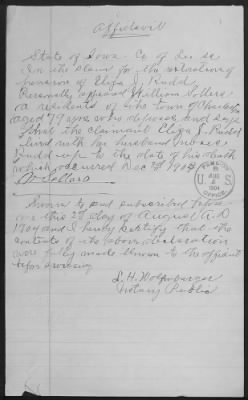 Affidavit
State of Iowa Co of Lee ss
In the claim for the restoration of
pension of Eliza J. Rudd
Personally appeared William Sellers
a resident of the town of
aged 79 years who deposes and says
that the claimant Eliza J. Rudd
lived with her husband
Rudd up to the date of his death
which occurred Dec 1904
Wm Sellers
Sworn to and subscribed before
me this 2 day of August A.D
1904 and I hereby certify that the
contents of the above declaration
were fully made known to the affiant
before swearing
S. H. Wolfenbarger
Notary Public
U S
AUG
1904